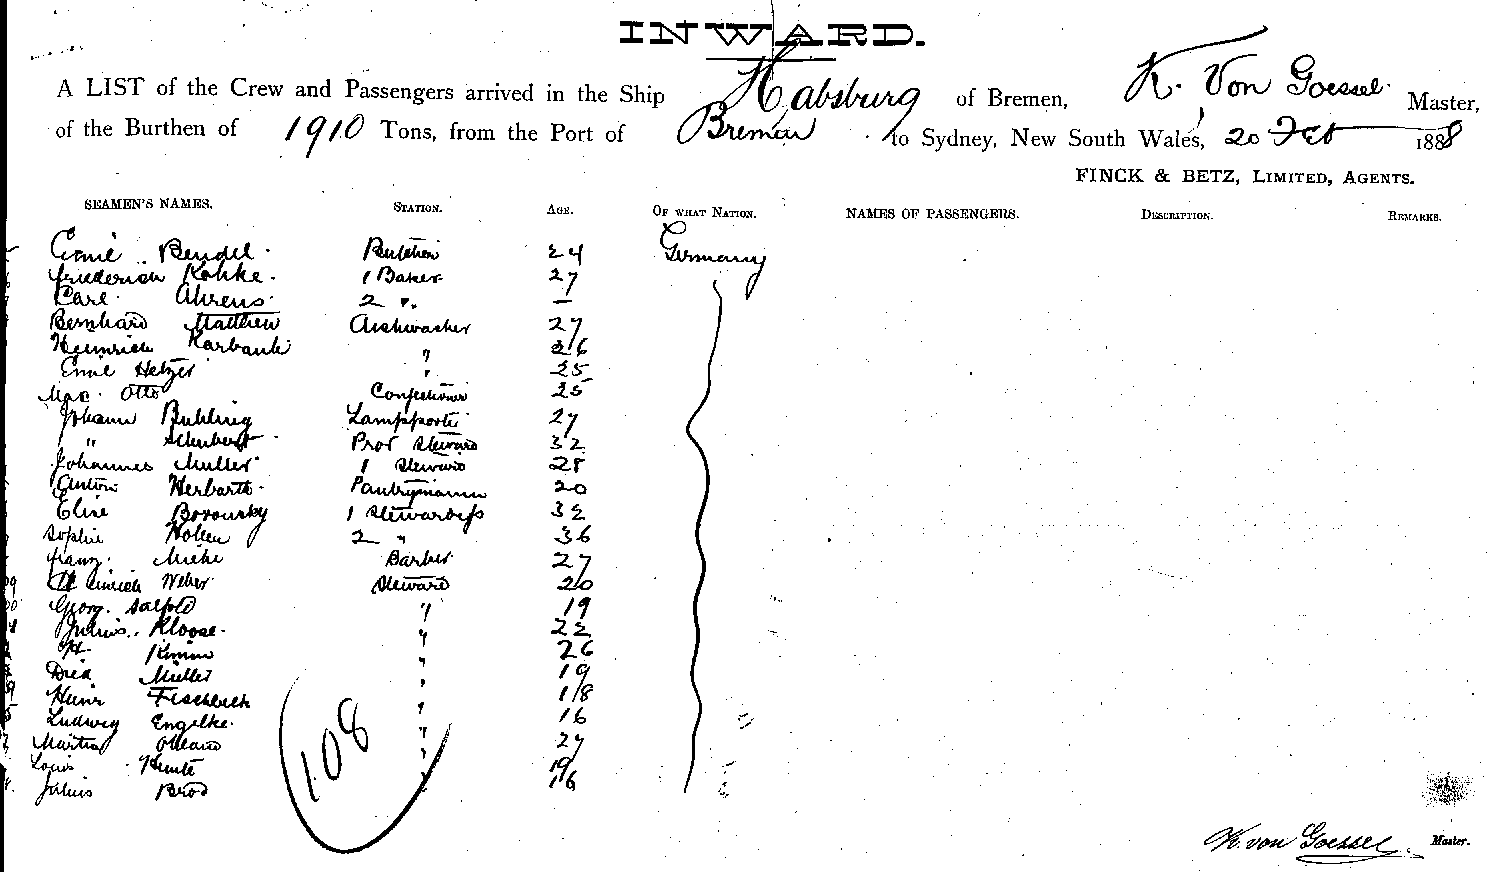 INWARD.
A LIST of the Crew and Passengers arrived in the Ship Habsburg of Bremen, K. Von Goessel. Master,
of the Burthen of 1910 Tons, from the Port of Bremen to Sydney, New South Wales, 20 Feb 1888
FINCK & BETZ, LIMITED, AGENTS.
SEAMEN'S NAMES. STATION. AGE. OF WHAT NATION. NAMES OF PASSENGERS. DESCRIPTION. REMARKS.
Emil Bendel. 24 Germany
Friederich Kohke. 1 Baker 27
Carl Ahrens. 2 ". —
Bernhard Matthew Dishwasher 27
Heinrich Karbank " 26
Emil Hetzer " 25
Max. Otto Confectioner 25
Johann Buhling 27
" Schubert Prov Steward 32
Johannes Muller 1 Steward 28
Anton Herbarth. Pantrymann 20
Elise Borousky 1 Stewardess 32
Sophie 2 " 36
Franz. Barber 27
Heinrich Weber Steward 20
Georg. " 19
Julius. Kloose. " 22
" 26
Died Müller " 19
Heinr Fischbeck " 18
Ludwig Engelke. " 16
" 27
Louis " 19
Julius Brod " 16
108
K. von Goessel. Master.